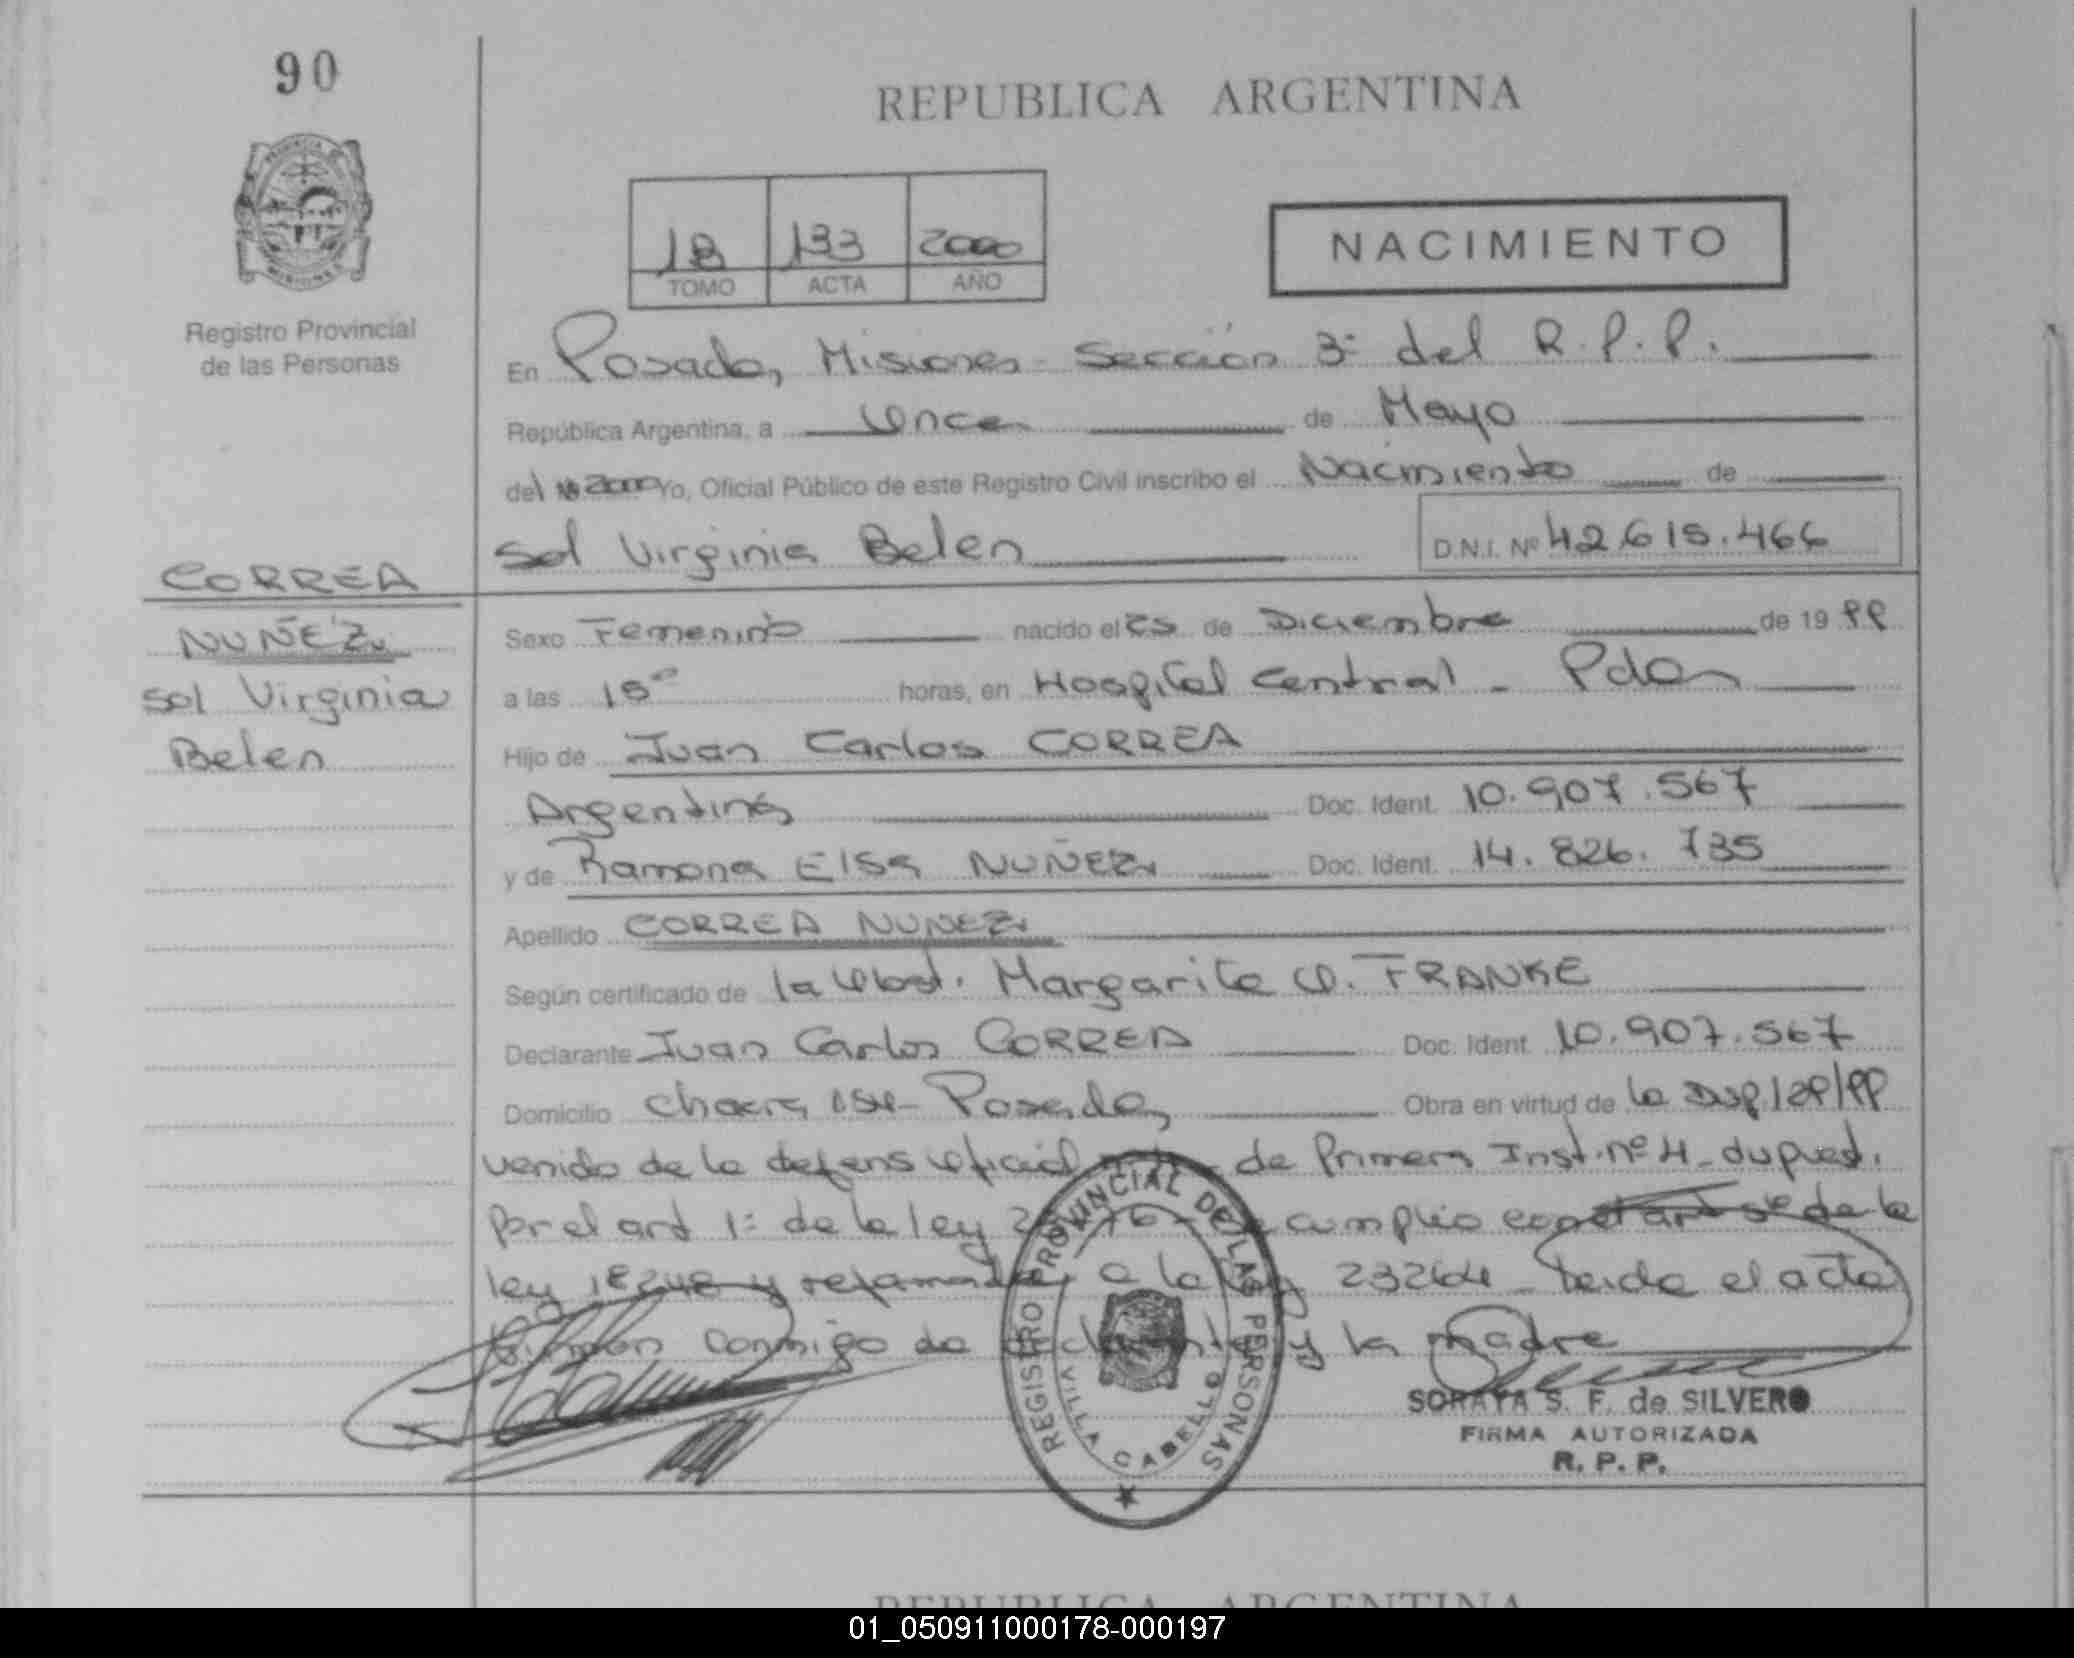 90
REPUBLICA ARGENTINA
PROVINCIA
MISIONES
18 133 2000
TOMO ACTA AÑO
NACIMIENTO
Registro Provincial
de las Personas
En Posadas, Misiones - Sección 3º del R.P.P.
República Argentina, a Once de Mayo
del 2000 Yo, Oficial Público de este Registro Civil inscribo el Nacimiento de
Sol Virginia Belen D.N.I. Nº 42.615.466
CORREA
NUÑEZ
Sol Virginia
Belen
Sexo Femenino nacido el 25 de Diciembre de 19 99
a las 15 horas, en Hospital Central - Pdas
Hijo de Juan Carlos CORREA
Argentino Doc. Ident. 10.907.567
y de Ramona Elsa NUÑEZ Doc. Ident. 14.826.735
Apellido CORREA NUÑEZ
Según certificado de la Obst. Margarita O. FRANKE
Declarante Juan Carlos CORREA Doc. Ident. 10.907.567
Domicilio Chacra Posadas Obra en virtud de la Disp
venido de la defens oficial de Primera Inst. nº 4 - dispuest.
Por el art 1º de la ley cumplio de la
ley 18248 y reformada a la ley 23264 - Leida el acta
firman conmigo y la madre
REGISTRO PROVINCIAL DE LAS PERSONAS
VILLA CABELLO
SORAYA S. F. de SILVERO
FIRMA AUTORIZADA
R. P. P.
REPUBLICA ARGENTINA
01_050911000178-000197